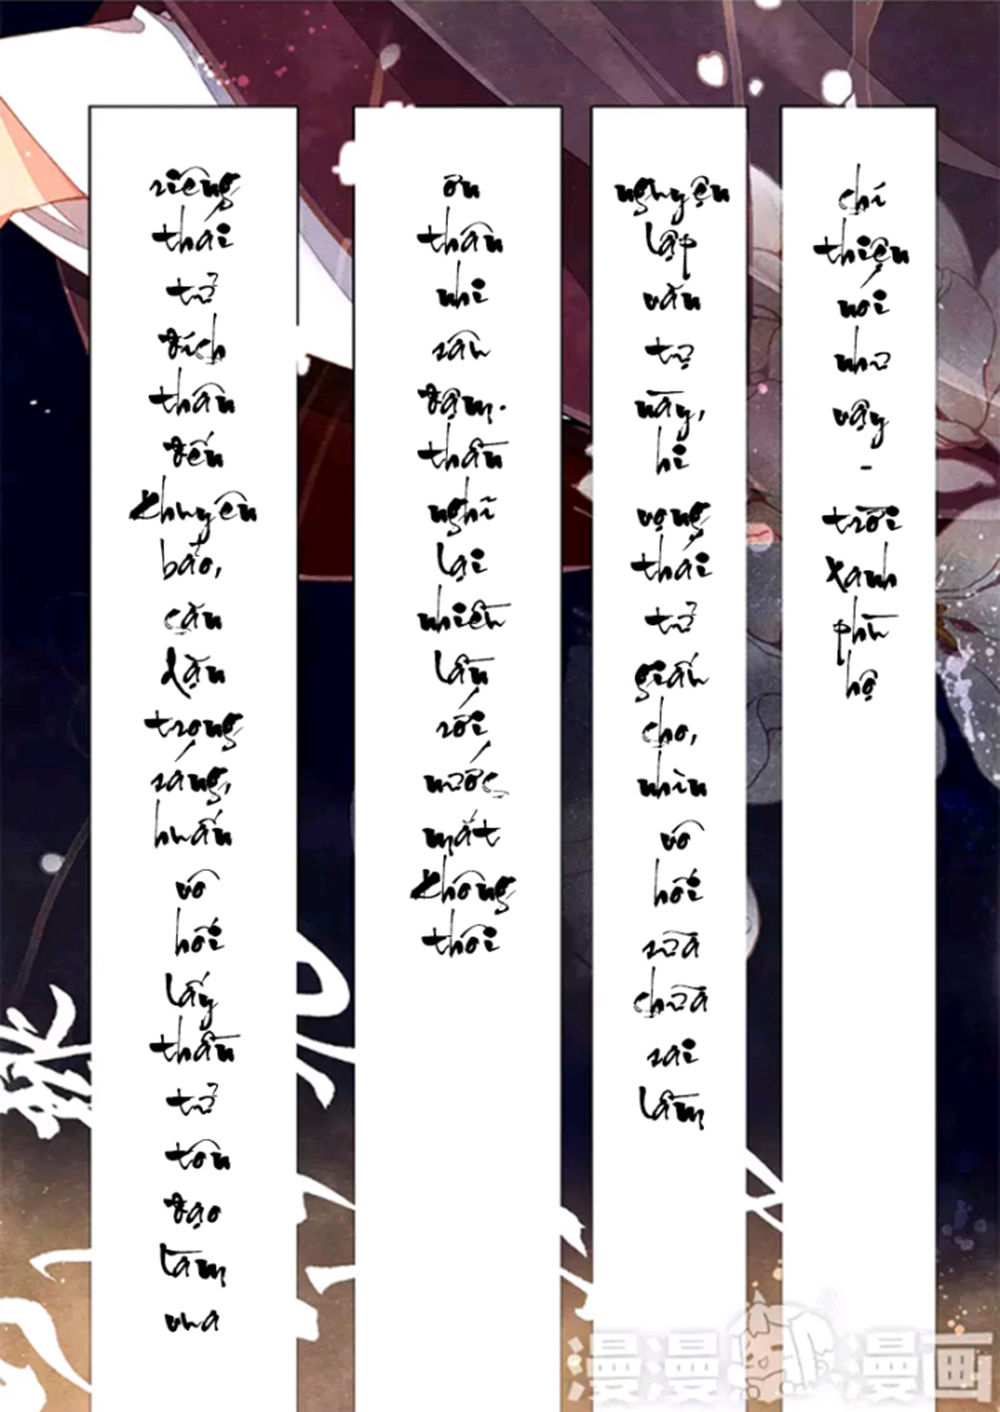 riêng
thái
tử
đích
thân
đến
khuyên
bảo,
căn
dặn
trong
sáng,
huấn
vô
hối
lấy
thần
tử
tôn
đạo
làm
vua
ôn
thần
nhi
sân
đậm.
thần
nghĩ
lại
nhiều
lần
rồi
nước
mắt
không
thôi
nguyện
lập
văn
tự
này,
hi
vọng
thái
tử
giấu
cho,
nhìn
vô
hối
sửa
chữa
sai
lầm
chí
thiện
nói
như
vậy
-
trời
xanh
phù
hộ
漫漫漫画